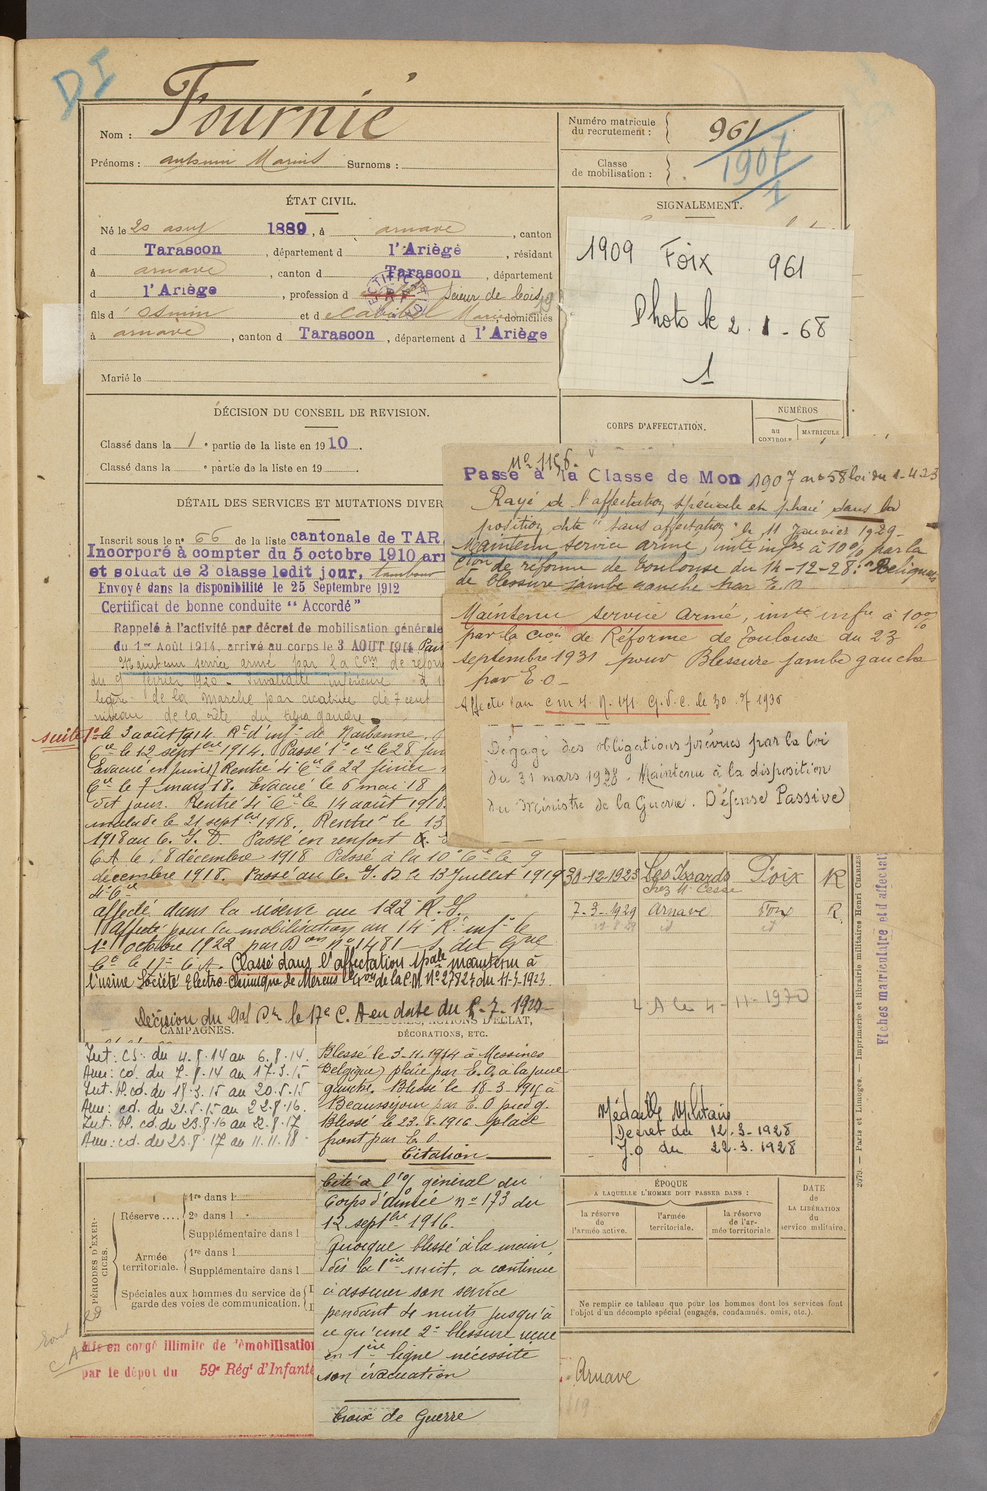 DI
Nom : Fournié
Prénoms : Antonin Marius Surnoms :
Numéro matricule du recrutement : 961
Classe de mobilisation : 1907
1
ÉTAT CIVIL.
Né le 20 1889, à arnave, canton
d Tarascon, département d l'Ariège, résidant
à arnave, canton d Tarascon, département
d l'Ariège, profession d Scieur de bois
fils d et d Marie, domiciliés
à arnave, canton d Tarascon, département d l'Ariège
Marié le
SIGNALEMENT.
1909 Foix 961
Photo le 2.1-68
1
DÉCISION DU CONSEIL DE REVISION.
Classé dans la 1e partie de la liste en 1910
Classé dans la e partie de la liste en 19
CORPS D'AFFECTATION.
NUMÉROS
au CONTRÔLE
MATRICULE
DÉTAIL DES SERVICES ET MUTATIONS DIVER
Inscrit sous le n° 66 de la liste cantonale de TAR
Incorporé à compter du 5 octobre 1910 arr
et soldat de 2 classe ledit jour, tambour
Envoyé dans la disponibilité le 25 Septembre 1912
Certificat de bonne conduite “ Accordé”
Rappelé à l'activité par décret de mobilisation générale
du 1er Août 1914, arrivé au corps le 3 AOUT 1914
Maintenu service armé par la Com de réform
du 9 février 1920.
légère de la marche par cicatrice de 7 cent
niveau de la côte du tibia gauche
suite 1° le 3 août 1914. Rt d'inf ie de Narbonne.
Cie le 12 septbre 1914. Passé 1e cie le 28 juin
Evacué Rentré 4e Cie le 22 février
Cie le 7 mars 18. Evacué le 6 mai 18
dit jour. Rentré 4e Cie le 14 août 1918.
malade le 21 septbre 1918. Rentré le 13
1918 au C. I. D. Passé en renfort
6 A le 8 décembre 1918 Passé à la 10e Cie le 9
décembre 1918. Passé au C. I. D. le 13 Juillet 1919
4e Cie
affecté dans la réserve au 122e R.I.
Affecté pour la mobilisation au 14e R. inf ie le
1er octobre 1922 par Don n° 1481 du Gne
Ct le 17e C.A. Classé dans l'affectation spale maintenu à
l'usine Société Electro-chimique de Mercus
Décision du Gal Ct le 17e C. A en date du 5-7-1920
No 1156.
Passé à la Classe de Mon 1907 art 58 loi du 1-4-23
Rayé de l'affectation spéciale et placé dans la
position dite “sans affectation” le 11 Janvier 1929
Maintenu service armé, invte infre à 10% par la
Cion de réforme de Toulouse du 14-12-28: Reliquat
de blessure jambe gauche par E.O
Maintenu service armé, invte infre à 10%
par la Cion de Réforme de Toulouse du 23
septembre 1931 pour Blessure jambe gauche
par E.O-
Dégagé des obligations prévues par la loi
du 31 mars 1928. Maintenu à la disposition
du Ministre de la Guerre. Défense Passive
30-12-1923 Les Issards Foix R
chez Mr Cesse
7-3-1929 Arnave Foix R.
id id
4-11-1930
CAMPAGNES.
Int: CS: du 4.8.14 au 6.8.14.
Aux: cd. du 7.8.14 au 17.3.15
Int. bl. cd. du 18.3.15 au 20.5.15
Aux: cd. du 21.5.15 au 22.8.16.
Int. bl. cd. du 23.8.16 au 22.8.17
Aux: cd. du 23.8.17 au 11.11.18.
BLESSURES, ACTIONS D'ÉCLAT,
DÉCORATIONS, ETC.
Blessé le 3-11-1914 à Messines
Belgique) plaie par E.O. à la jambe
gauche. Blessé le 18-3-1915 à
Beausejour par E.O pied g.
Blessé le 23.8.1916 plaie
front par E.O.
Citation
Cité à l'o/ général du
Corps d'armée n° 173 du
12 septbre 1916.
Quoique blessé à la main,
dès la 1ère nuit, a continué
à assurer son service
pendant de nuits jusqu'à
ce qu'une 2e blessure reçue
en 1ère ligne nécessite
son évacuation
Croix de Guerre
Médaille Militaire
Decret du 12.3-1928
J.O du 22.3.1928
PÉRIODES D'EXERCICES.
Réserve ....
1re dans l
2e dans l
Supplémentaire dans l
Armée territoriale.
1re dans l
Supplémentaire dans l
Spéciales aux hommes du service de
garde des voies de communication.
ÉPOQUE
A LAQUELLE L'HOMME DOIT PASSER DANS :
la réserve de l'armée active.
l'armée territoriale.
la réserve de l'armée territoriale
DATE de LA LIBÉRATION du service militaire.
Ne remplir ce tableau que pour les hommes dont les services font
l'objet d'un décompte spécial (engagés, condamnés, omis, etc.).
Mis en congé illimité de démobilisation
par le dépôt du 59e Régt d'Infante
Arnave
Fiches matriculaire et d'affectat
2079. — Paris et Limoges. — Imprimerie et librairie militaires Henri CHARLES